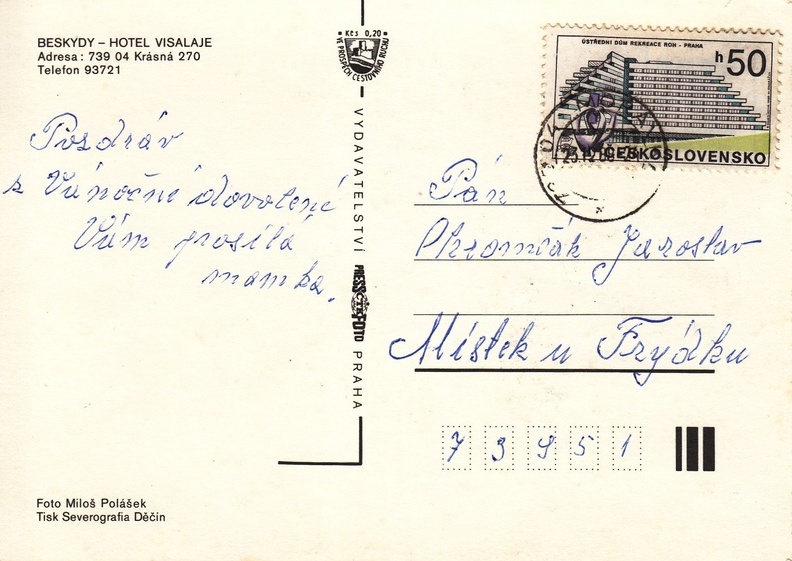 BESKYDY – HOTEL VISALAJE
Adresa: 739 04 Krásná 270
Telefon 93721
Pozdráv
s Vánoční dovolené
Vám prosílá
mamka.
Kčs 0,20
VE PROSPĚCH CESTOVNÍHO RUCHU
VYDAVATELSTVÍ PRESSFOTO PRAHA
ČTK
ÚSTŘEDNÍ DŮM REKREACE ROH - PRAHA
h 50
ČESKOSLOVENSKO
Pán
Jaroslav
Místek u Frýdku
7 3 9 5 1
Foto Miloš Polášek
Tisk Severografia Děčín